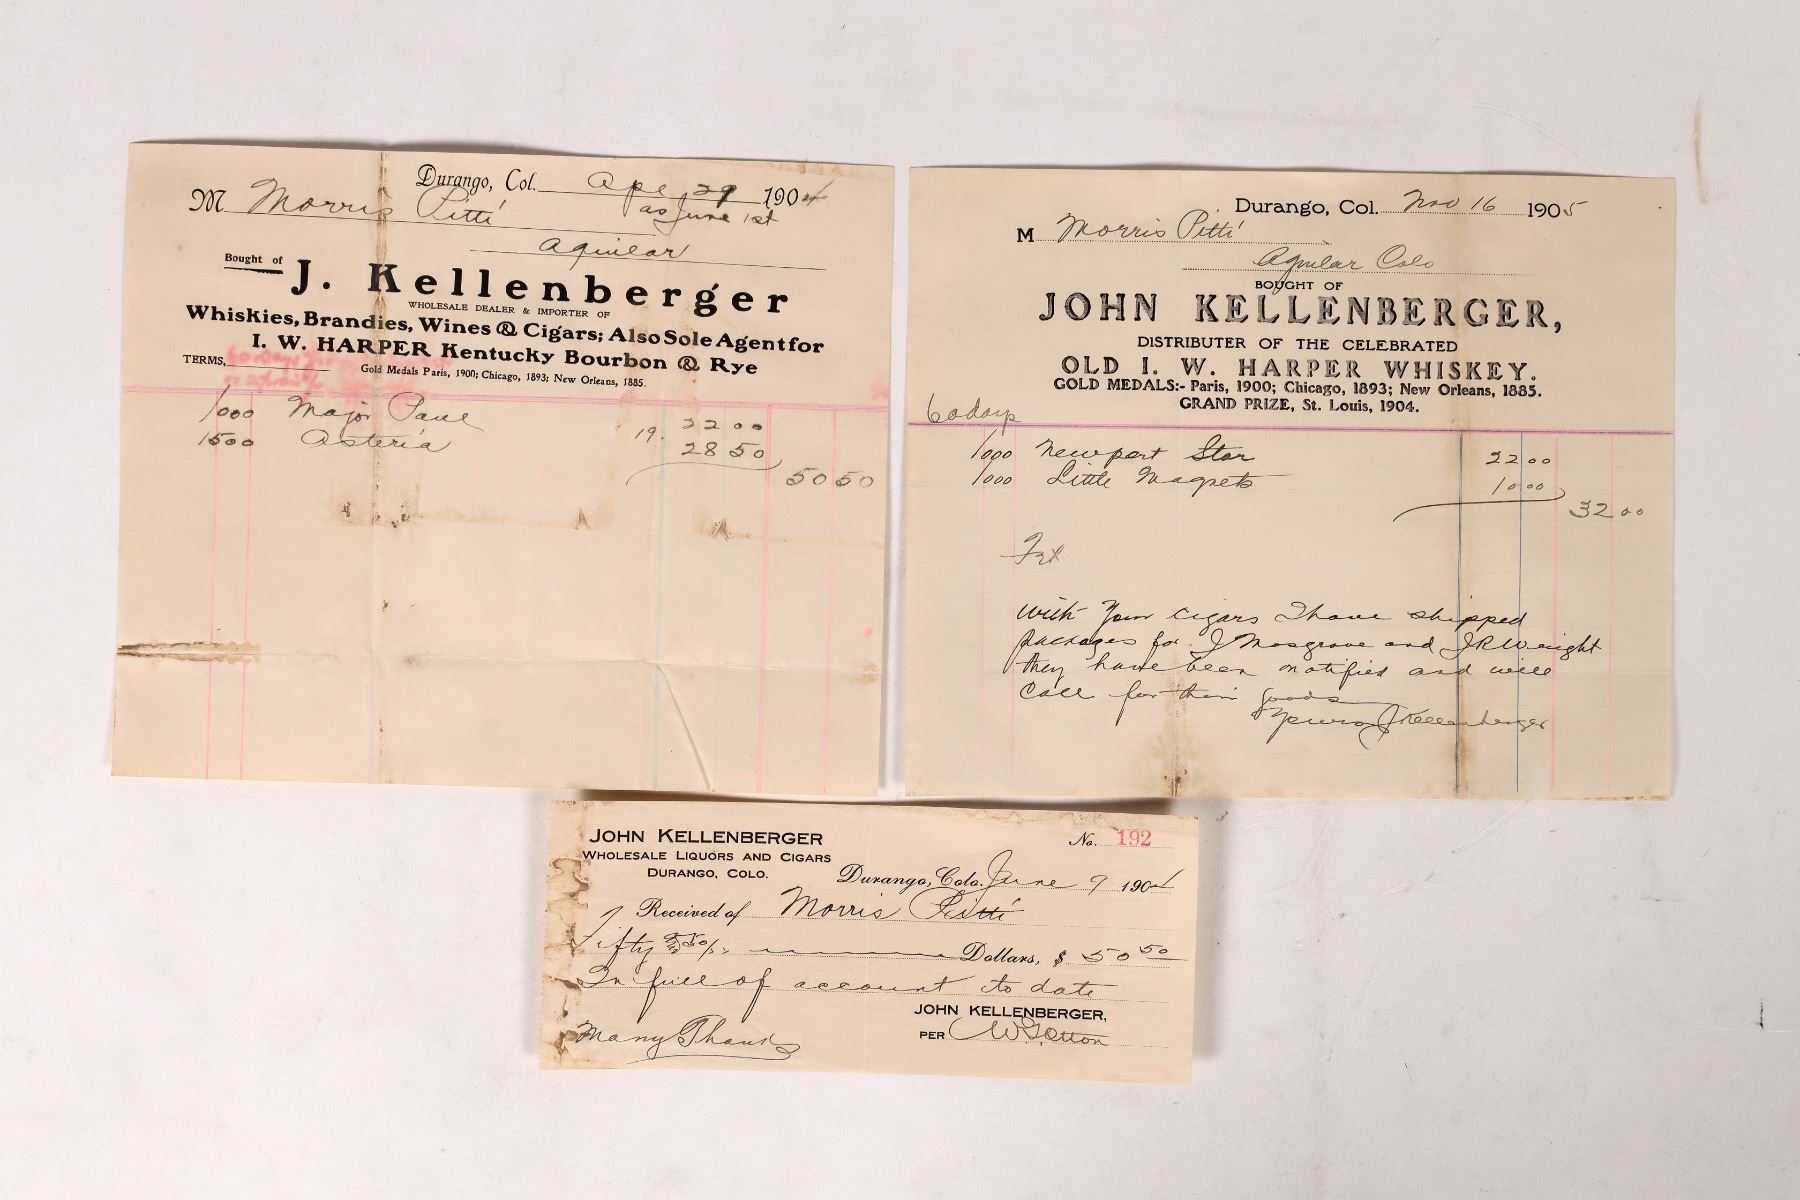 Durango, Col. Apr 29 1904
M Morris Pitti as June 1st
Aguilar
Bought of
J. Kellenberger
WHOLESALE DEALER & IMPORTER OF
Whiskies, Brandies, Wines & Cigars; Also Sole Agent for
I. W. HARPER Kentucky Bourbon & Rye
TERMS, 60 Days
Gold Medals Paris, 1900; Chicago, 1893; New Orleans, 1885.
1000 Major Paul 22 00
1500 Asteria 19. 28 50
50 50
Durango, Col. Nov 16 1905
M Morris Pitti
Aguilar Colo
BOUGHT OF
JOHN KELLENBERGER,
DISTRIBUTER OF THE CELEBRATED
OLD I. W. HARPER WHISKEY.
GOLD MEDALS:- Paris, 1900; Chicago, 1893; New Orleans, 1885.
GRAND PRIZE, St. Louis, 1904.
60 days
1000 Newport Star 22 00
1000 Little Magnets 10 00
32 00
Frt
With Your cigars I have shipped
packages for J Mosgrove and J R Wright
they have been notified and will
Call for their goods
Yours J Kellenberger
JOHN KELLENBERGER
WHOLESALE LIQUORS AND CIGARS
DURANGO, COLO.
No. 192
Durango, Colo. June 9 1904
Received of Morris Pitti
Fifty & 50/ Dollars, $ 50 50
In full of account to date
JOHN KELLENBERGER,
Many Thanks
PER W G Otton